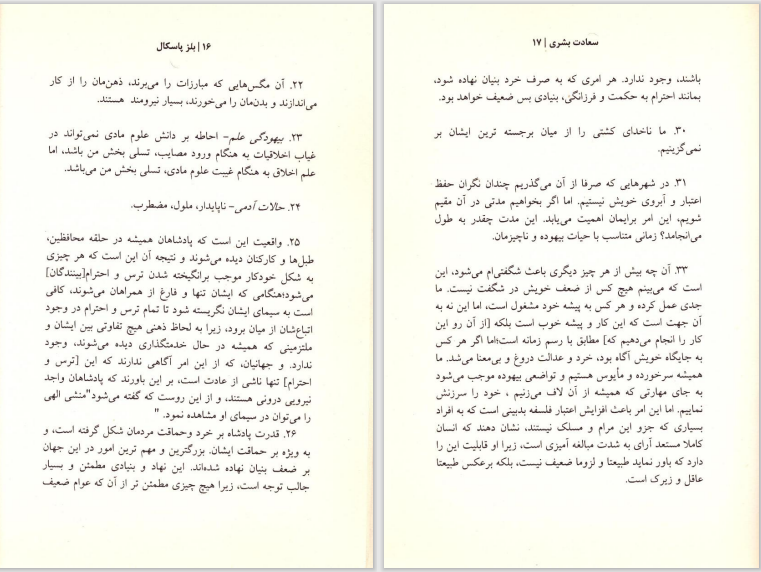 ۱۶ | بلز پاسکال
۲۲. آن مگس‌هایی که مبارزات را می‌برند، ذهن‌مان را از کار
می‌اندازند و بدن‌مان را می‌خورند، بسیار نیرومند هستند.
۲۳. بیهودگی علم- احاطه بر دانش علوم مادی نمی‌تواند در
غیاب اخلاقیات به هنگام ورود مصایب، تسلی بخش من باشد، اما
علم اخلاق به هنگام غیبت علوم مادی، تسلی بخش من می‌باشد.
۲۴. حالات آدمی- ناپایدار، ملول، مضطرب.
۲۵. واقعیت این است که پادشاهان همیشه در حلقه محافظین،
طبل‌ها و کارکنان دیده می‌شوند و نتیجه آن این است که هر چیزی
به شکل خودکار موجب برانگیخته شدن ترس و احترام[بینندگان]
می‌شود؛هنگامی که ایشان تنها و فارغ از همراهان می‌شوند، کافی
است به سیمای ایشان نگریسته شود تا تمام ترس و احترام در وجود
اتباع‌شان از میان برود، زیرا به لحاظ ذهنی هیچ تفاوتی بین ایشان و
ملتزمینی که همیشه در حال خدمتگذاری دیده می‌شوند، وجود
ندارد. و جهانیان، که از این امر آگاهی ندارند که این [ترس و
احترام] تنها ناشی از عادت است، بر این باورند که پادشاهان واجد
نیرویی درونی هستند، و از این روست که گفته می‌شود"منشی الهی
را می‌توان در سیمای او مشاهده نمود. "
۲۶. قدرت پادشاه بر خرد وحماقت مردمان شکل گرفته است، و
به ویژه بر حماقت ایشان. بزرگترین و مهم ترین امور در این جهان
بر ضعف بنیان نهاده شده‌اند. این نهاد و بنیادی مطمئن و بسیار
جالب توجه است، زیرا هیچ چیزی مطمئن تر از آن که عوام ضعیف
سعادت بشری | ۱۷
باشند، وجود ندارد. هر امری که به صرف خرد بنیان نهاده شود،
بمانند احترام به حکمت و فرزانگی، بنیادی بس ضعیف خواهد بود.
۳۰. ما ناخدای کشتی را از میان برجسته ترین ایشان بر
نمی‌گزینیم.
۳۱. در شهرهایی که صرفا از آن می‌گذریم چندان نگران حفظ
اعتبار و آبروی خویش نیستیم. اما اگر بخواهیم مدتی در آن مقیم
شویم، این امر برایمان اهمیت می‌یابد. این مدت چقدر به طول
می‌انجامد؟ زمانی متناسب با حیات بیهوده و ناچیزمان.
۳۳. آن چه بیش از هر چیز دیگری باعث شگفتی‌ام می‌شود، این
است که می‌بینم هیچ کس از ضعف خویش در شگفت نیست. ما
جدی عمل کرده و هر کس به پیشه خود مشغول است، اما این نه به
آن جهت است که این کار و پیشه خوب است بلکه [از آن رو این
کار را انجام می‌دهیم که] مطابق با رسم زمانه است؛اما اگر هر کس
به جایگاه خویش آگاه بود، خرد و عدالت دروغ و بی‌معنا می‌شد. ما
همیشه سرخورده و مأیوس هستیم و تواضعی بیهوده موجب می‌شود
به جای مهارتی که همیشه از آن لاف می‌زنیم ، خود را سرزنش
نماییم. اما این امر باعث افزایش اعتبار فلسفه بدبینی است که به افراد
بسیاری که جزو این مرام و مسلک نیستند، نشان دهند که انسان
کاملا مستعد آرای به شدت مبالغه آمیزی است، زیرا او قابلیت این را
دارد که باور نماید طبیعتا و لزوما ضعیف نیست، بلکه برعکس طبیعتا
عاقل و زیرک است.